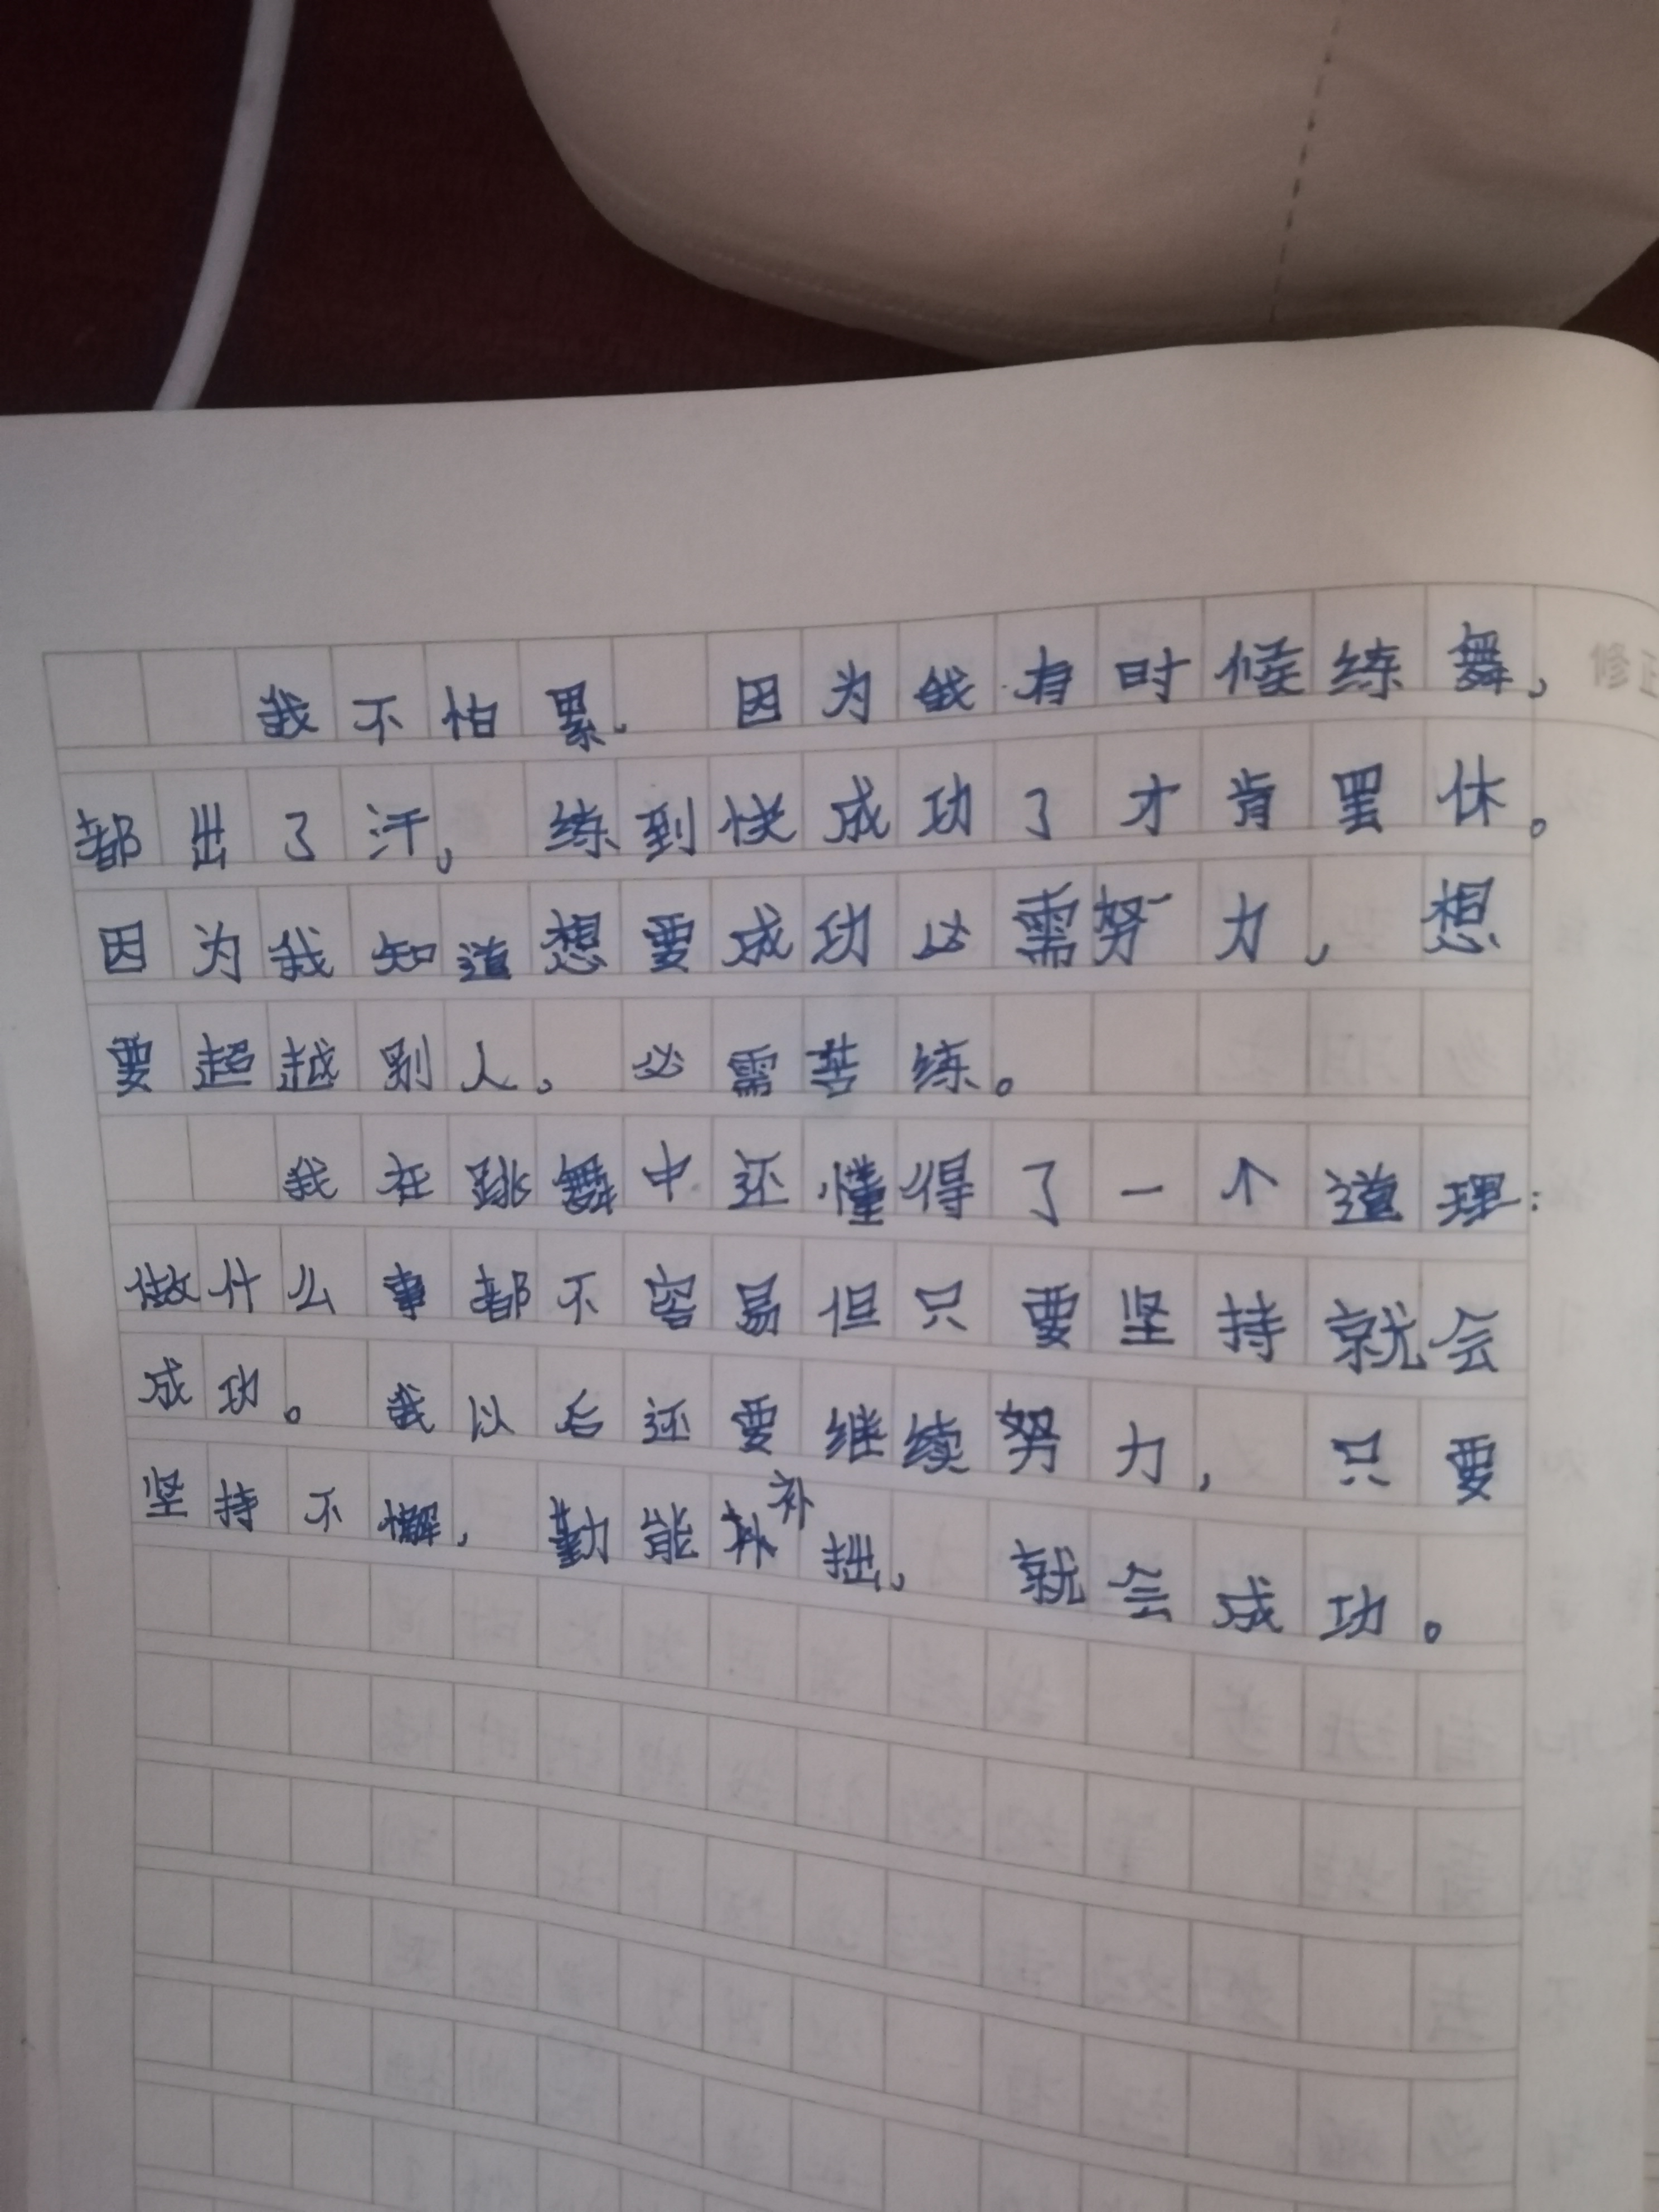 我不怕累，因为我有时候练舞，
都出了汗，练到快成功了才肯罢休。
因为我知道想要成功必需努力，想
要超越别人。必需苦练。
我在跳舞中还懂得了一个道理：
做什么事都不容易但只要坚持就会
成功。我以后还要继续努力，只要
坚持不懈，勤能补拙，就会成功。
修正